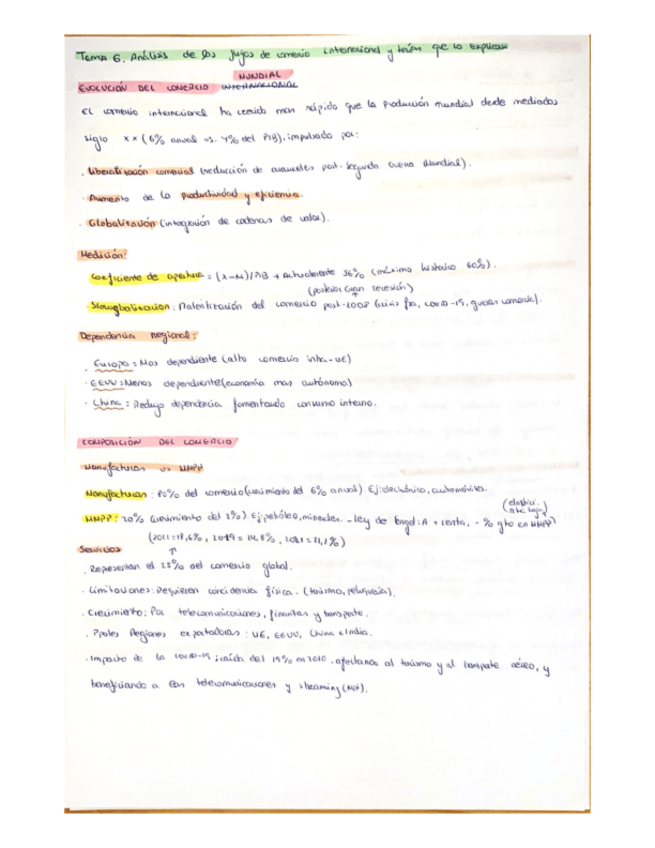 Tema 6. Análisis de los flujos de comercio internacional y teorías que lo explican
MUNDIAL
EVOLUCIÓN DEL COMERCIO INTERNACIONAL
El comercio internacional ha crecido mas rápido que la producción mundial desde mediados
siglo XX (6% anual vs. 4% del PIB), impulsado por:
· Liberalización comercial (reducción de aranceles post-Segunda Guerra Mundial).
· Aumento de la productividad y eficiencia.
· Globalización (integración de cadenas de valor).
Medición:
Coeficiente de apertura = (X-M)/PIB + Actualmente 56% (máximo histórico 60%).
(posterior Gran recesión)
Slowgbalización: Ralentización del comercio post-2008 (crisis fra, covid-19, guerra comercial).
Dependencia regional:
· Europa = Mas dependiente (alto comercio intra-UE)
· EEUU = Menos dependiente (economía mas autónoma)
· China = Redujo dependencia fomentando consumo interno.
COMPOSICIÓN DEL COMERCIO
Manufacturas vs MMPP
Manufacturas: 80% del comercio (crecimiento del 6% anual). Ej: electrónica, automóviles.
MMPP: 20% (crecimiento del 2%). Ej: petróleo, minerales. - Ley de Engel: A + renta, - % gto en MMPP)
(elastici. rta baja)
2019 = 24,8%
Servicios
· Representan el 25% del comercio global.
· Limitaciones: Requieren coincidencia física. (turismo, peluquería).
· Crecimiento: Por telecomunicaciones, finanzas y transporte.
· Ppales Regiones exportadoras: UE, EEUU, China e India.
· Impacto de la COVID-19: caída del 19% en 2020, afectando al turismo y al transporte aéreo, y
beneficiando a las telecomunicaciones y streaming